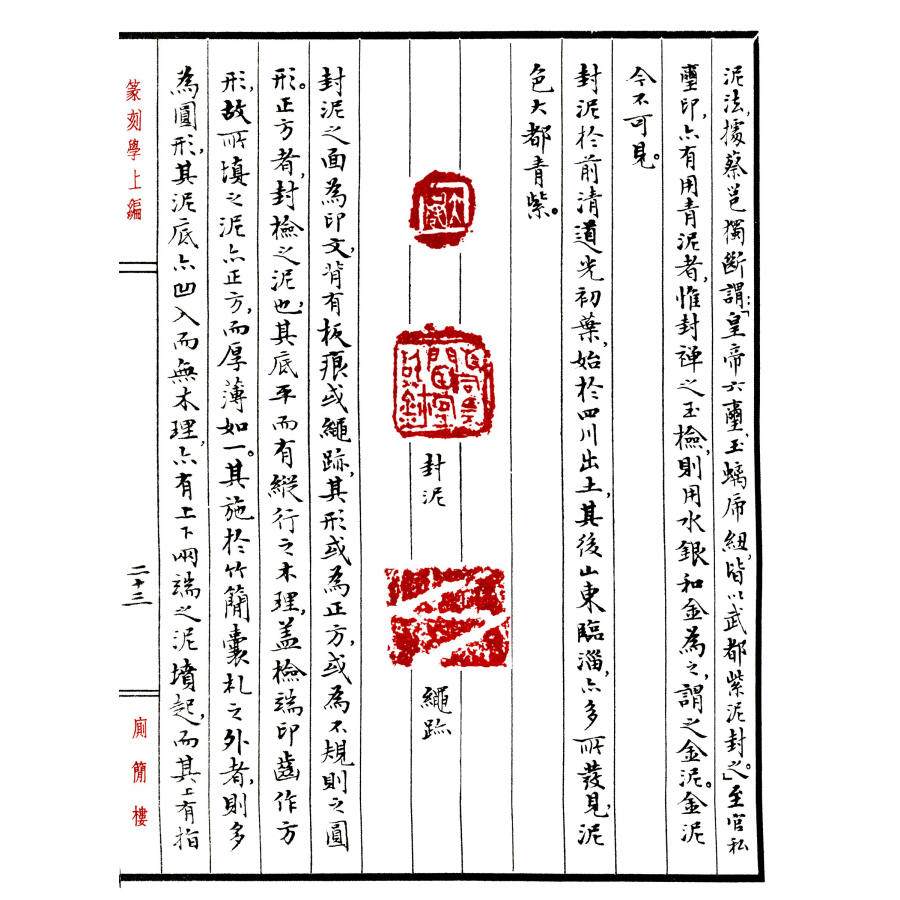 泥法，據蔡邕獨斷謂：「皇帝六璽，玉螭虎紐，皆以武都紫泥封之。」至官私
璽印，亦有用青泥者，惟封禅之玉檢，則用水銀和金為之，謂之金泥。金泥
今不可見。
封泥於前清道光初葉，始於四川出土，其後山東臨淄，亦多所發見，泥
色大都青紫。
封泥
繩跡
封泥之面為印文，背有板痕或繩跡，其形或為正方，或為不規則之圓
形。正方者，封檢之泥也，其底平而有縱行之木理，蓋檢端印齒作方
形，故所填之泥亦正方，而厚薄如一。其施於竹簡囊札之外者，則多
為圓形，其泥底亦凹入而無木理，亦有上下兩端之泥墳起，而其上有指
篆刻學上編
二十三
廁簡樓